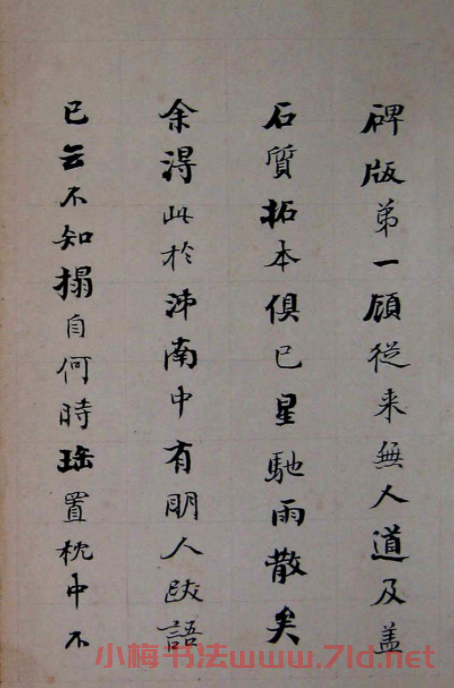 碑版弟一頋從来無人道及盖
石質拓本俱已星馳雨散矣
余淂此於泲南中有眀人跋語
已云不知搨自何時珤置枕中不
小梅书法www.7ld.net